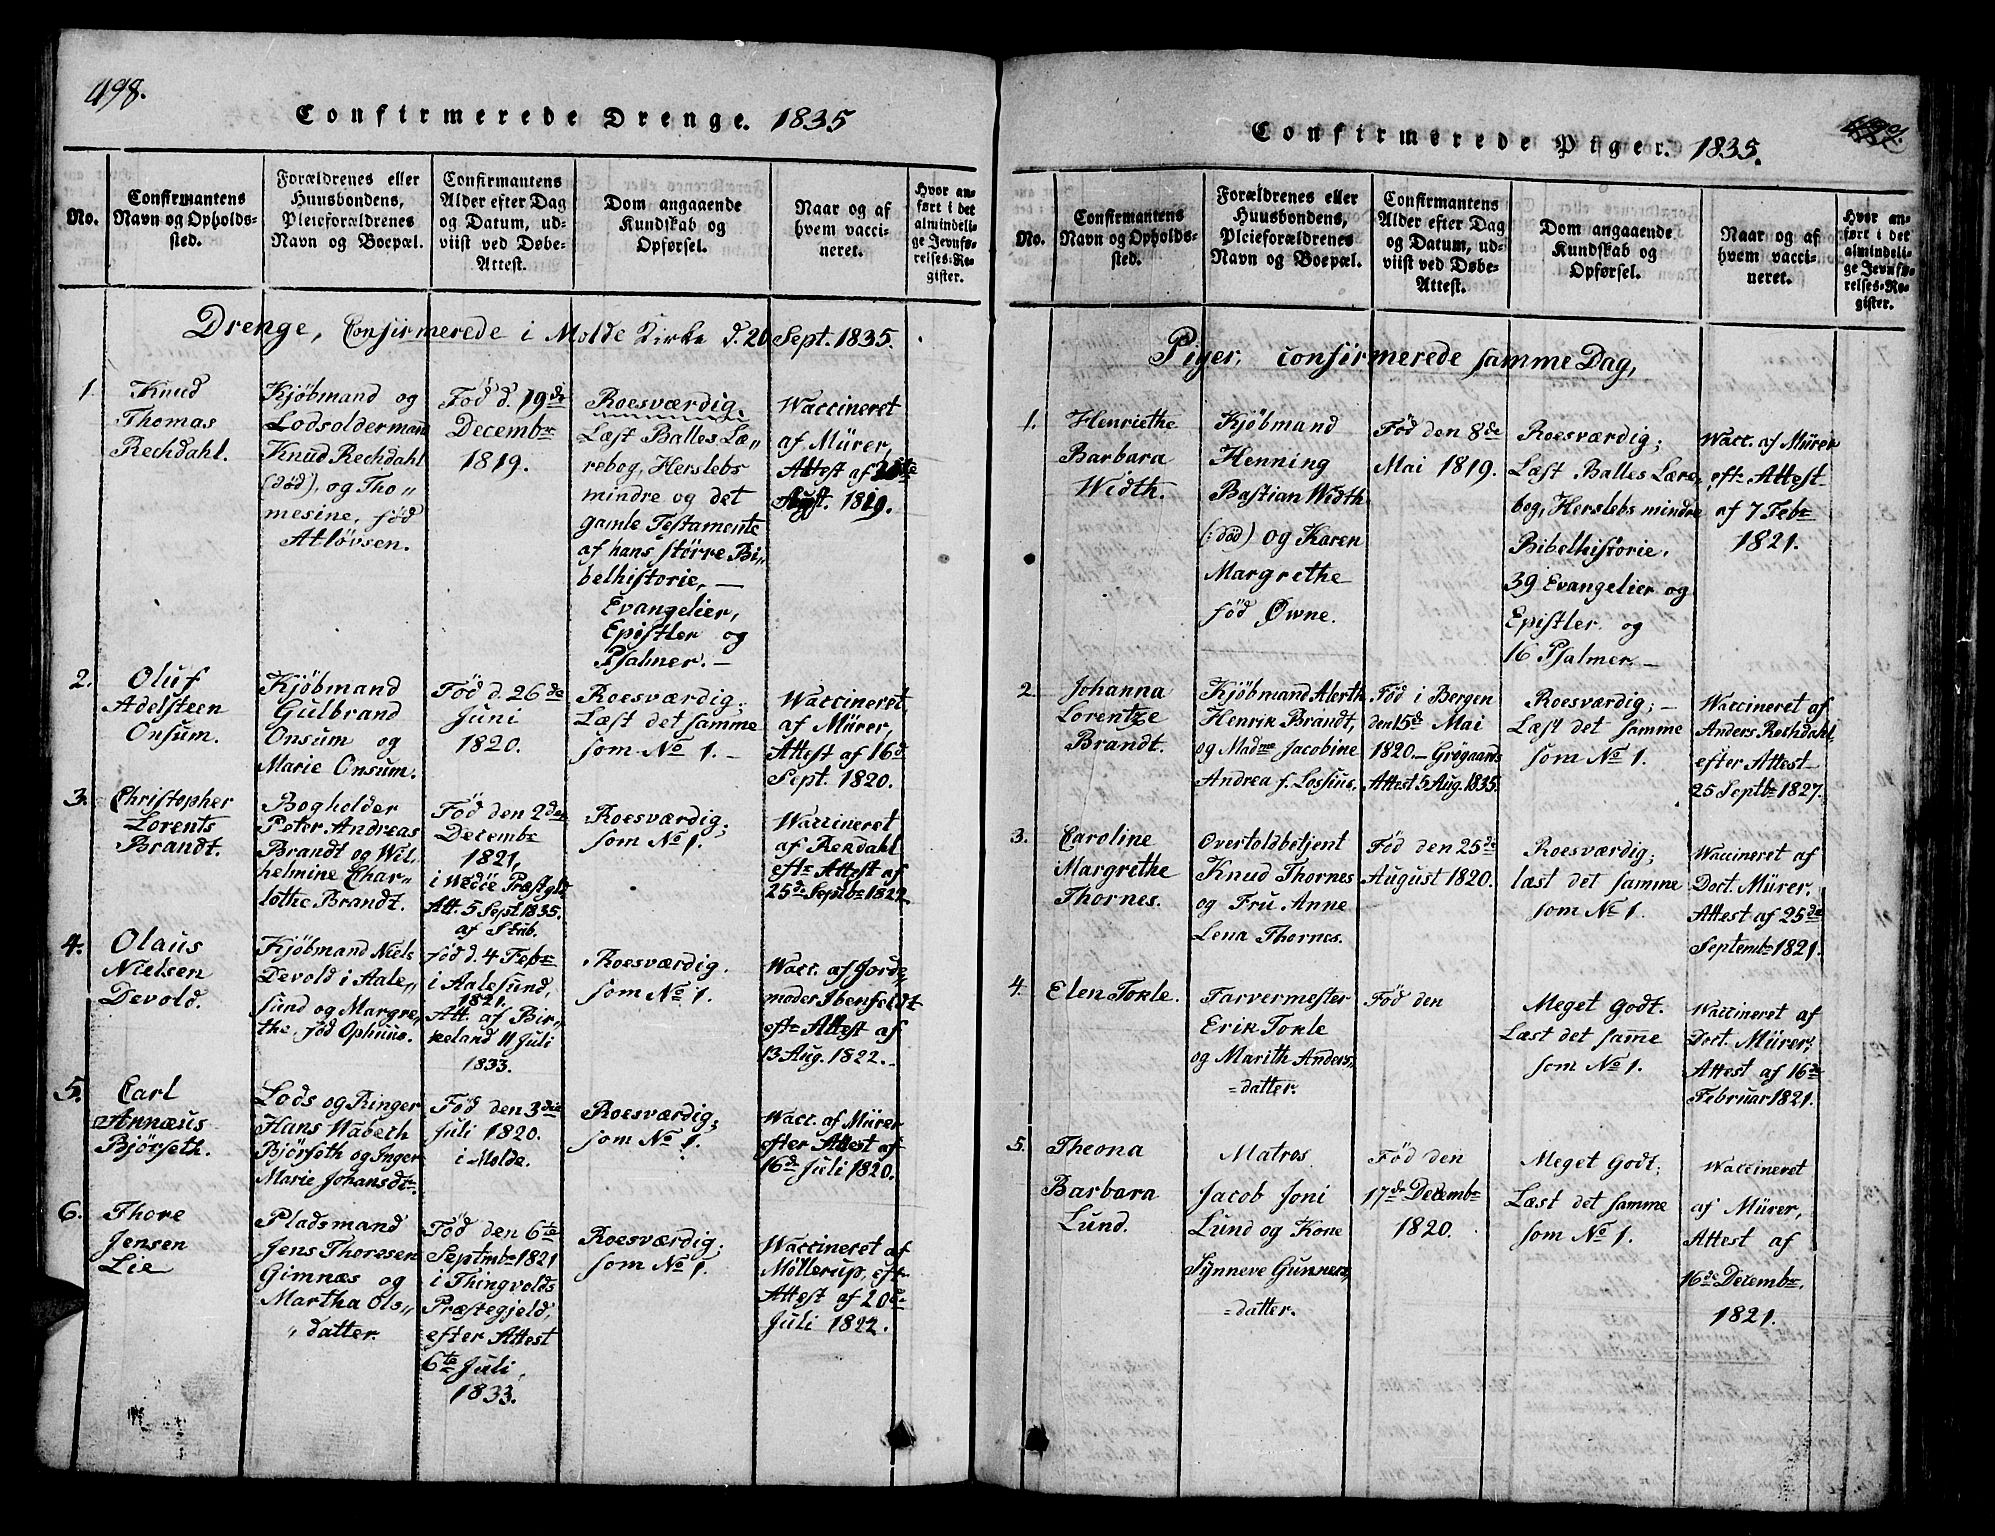 498.
Confirmerede Drenge. 1835
No.
Confirmantens
Navn og Opholds-
sted.
Forældrenes eller
Huusbondens,
Pleieforældrenes
Navn og Boepæl.
Confirmantens
Alder efter Dag
og Datum, ud-
viist ved Døbe-
Attest.
Dom angaaende
Kundskab og
Opførsel.
Naar og af
hvem vacci-
neret.
Hvor an-
ført i det
almindeli-
ge Jevnfø-
relses-Re-
gister.
Drenge, Confirmerede i Molde Kirke d. 20 Sept. 1835.
1.
Knud
Thomas
Rechdahl.
Kjöbmand og
Lodsoldermand
Knud Rechdahl
(död), og Tho„
mesine, föd
Atlövsen.
Föd d. 19de
Decembr
1819.
Roesværdig.
Læst Balles Læ„
rebog, Herslebs
mindre og det
gamle Testamente
af hans större Bi„
belhistorie, —
Evangelier,
Epistler og
Psalmer. —
Waccineret
af Mürer,
Attest af
Augst. 1819.
2.
Oluf
Adelsteen
Onsum.
Kjöbmand
Gulbrand
Onsum og
Marie Onsum.
Föd d. 26de
Juni
1820.
Roesværdig;
Læst det samme
som No 1. —
Waccineret
af Mürer,
Attest af 16d
Sept. 1820.
3.
Christopher
Lorents
Brandt.
Bogholder
Peter Andreas
Brandt og Wil„
helmine Char„
lothe Brandt.
Föd den 2den
Decembr
1821,
i Wedöe Præstgld
Att. 5 Sept 1835.
af Stub.
Roesværdig;
som No 1.
Waccineret
af Rekdahl
eftr Attest af
25de Septbr 1822.
4.
Olaus
Nielsen
Devold.
Kjöbmand Niels
Devold i Aale„
sund og Margre„
the, föd Ophuus.
föd d. 4 Febr
i Aalesund,
1821.
Att. af Bir„
keland 11 Juli
1833.
Roesværdig.
som No 1.
Wacc. af Jorde„
moder Ibenfeldt
eftr Attest af
13 Aug. 1822. —
5.
Carl
Annæus
Björseth.
Lods og Ringer
Hans Wabeth
Björseth og Inger
Marie Johansdtr.
Föd den 3die
Juli 1820.
i Molde.
Roesværdig;
som No 1.
Wacc. af Mürer
efter Attest af
16de Juli 1820.
6.
Thore
Jensen
Lie
Pladsmand
Jens Thoresen
Gimnæs og
Martha Ols„
„datter.
Föd den 6te
Septmbr 1821
i Thingvolds
Præstegjeld,
efter Attest
6te Juli,
1833.
Roesværdig;
som No 1.
Waccineret af
Möllerup, eft.
Attest af 20de
Juli 1822.
Confirmerede Piger. 1835.
No.
Confirmantens
Navn og Opholds-
sted.
Forældrenes eller
Huusbondens,
Pleieforældrenes
Navn og Boepæl.
Confirmantens
Alder efter Dag
og Datum, ud-
viist ved Døbe-
Attest.
Dom angaaende
Kundskab og
Opførsel.
Naar og af
hvem vacci-
neret.
Hvor an-
ført i det
almindeli-
ge Jevnfø-
relses-Re-
gister.
Piger, confirmerede samme Dag,
1.
Henriethe
Barbara
Width.
Kjöbmand
Henning
Bastian Width
(:död) og Karen
Margrethe
föd Øwne.
Föd den 8de
Mai 1819.
Roesværdig;
Læst Balles Lære„
bog, Herslebs mindre
Bibelhistorie.
39 Evangelier og
Epistler og
16 Psalmer. —
Wacc. af Mürer
eft. Attest
af 7 Febr
1821.
2
Johanna
Lorentze
Brandt.
Kjöbmand Alerth
Henrik Brandt,
og Madme Jacobine
Andrea f. Lossius.
Föd i Bergen
den 15de Mai
1820 — Grøgaards
Attest 5 Aug. 1835.
Roesværdig; —
Læst det samme
som No 1.
Waccineret af
Anders Rechdahl
efter Attest
25 Septbr 1827.
3.
Caroline
Margrethe
Thornes.
Overtoldbetjent
Knud Thornes
og Fru Anne
Lena Thornes.
Föd den 25de
August 1820.
Roesværdig;
læst det samme
som No 1.
Waccineret af
Doct. Mürer.
Attest af 25de
Septembr 1821.
4.
Elen Tokle.
Farvermester
Erik Tokle
og Marith Anders„
=datter.
Föd den
Meget Godt.
Læst det samme
som No 1.
Waccineret af
Doct. Mürer;
Attest af 16de
Februar 1821.
5.
Theona
Barbara
Lund.
Matros
Jacob Joni
Lund og Kone
Synneve Gunners„
=datter.
Föd den
17de Decembr
1820.
Meget Godt;
Læst det samme
som No 1.
Waccineret
af Mürer,
Attest af
16de Decembr.
1821.